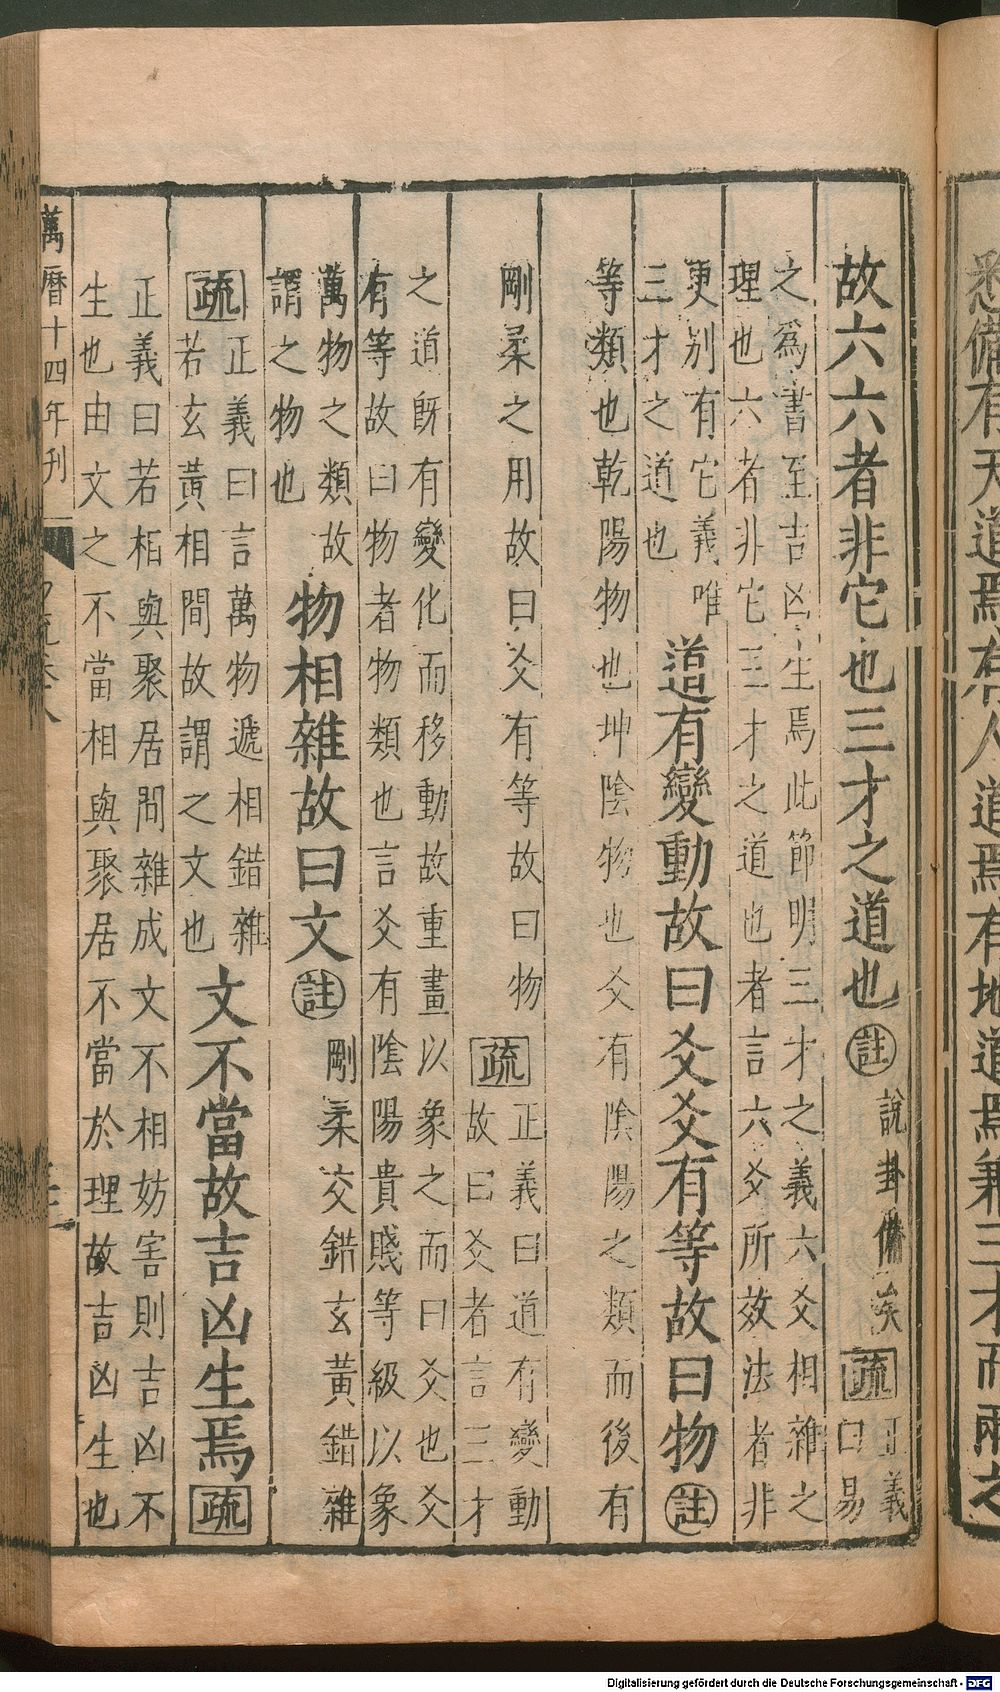 悉備有天道焉有人道焉有地道焉兼三才而兩之
故六六者非它也三才之道也註說卦備矣疏正義
曰易
之爲書至吉凶生焉此節明三才之義六爻相雜之
理也六者非它三才之道也者言六爻所效法者非
更別有它義唯
三才之道也
道有變動故曰爻爻有等故曰物註
等類也乾陽物也坤陰物也爻有陰陽之類而後有
剛柔之用故曰爻有等故曰物疏正義曰道有變動
故曰爻者言三才
之道旣有變化而移動故重畫以象之而曰爻也爻
有等故曰物者物類也言爻有陰陽貴賤等級以象
萬物之類故
謂之物也
物相雜故曰文註剛柔交錯玄黃錯雜
疏正義曰言萬物遞相錯雜
若玄黃相間故謂之文也
文不當故吉凶生焉疏
正義曰若栢與聚居間雜成文不相妨害則吉凶不
生也由文之不當相與聚居不當於理故吉凶生也
萬曆十四年刊
Digitalisierung gefördert durch die Deutsche Forschungsgemeinschaft - DFG